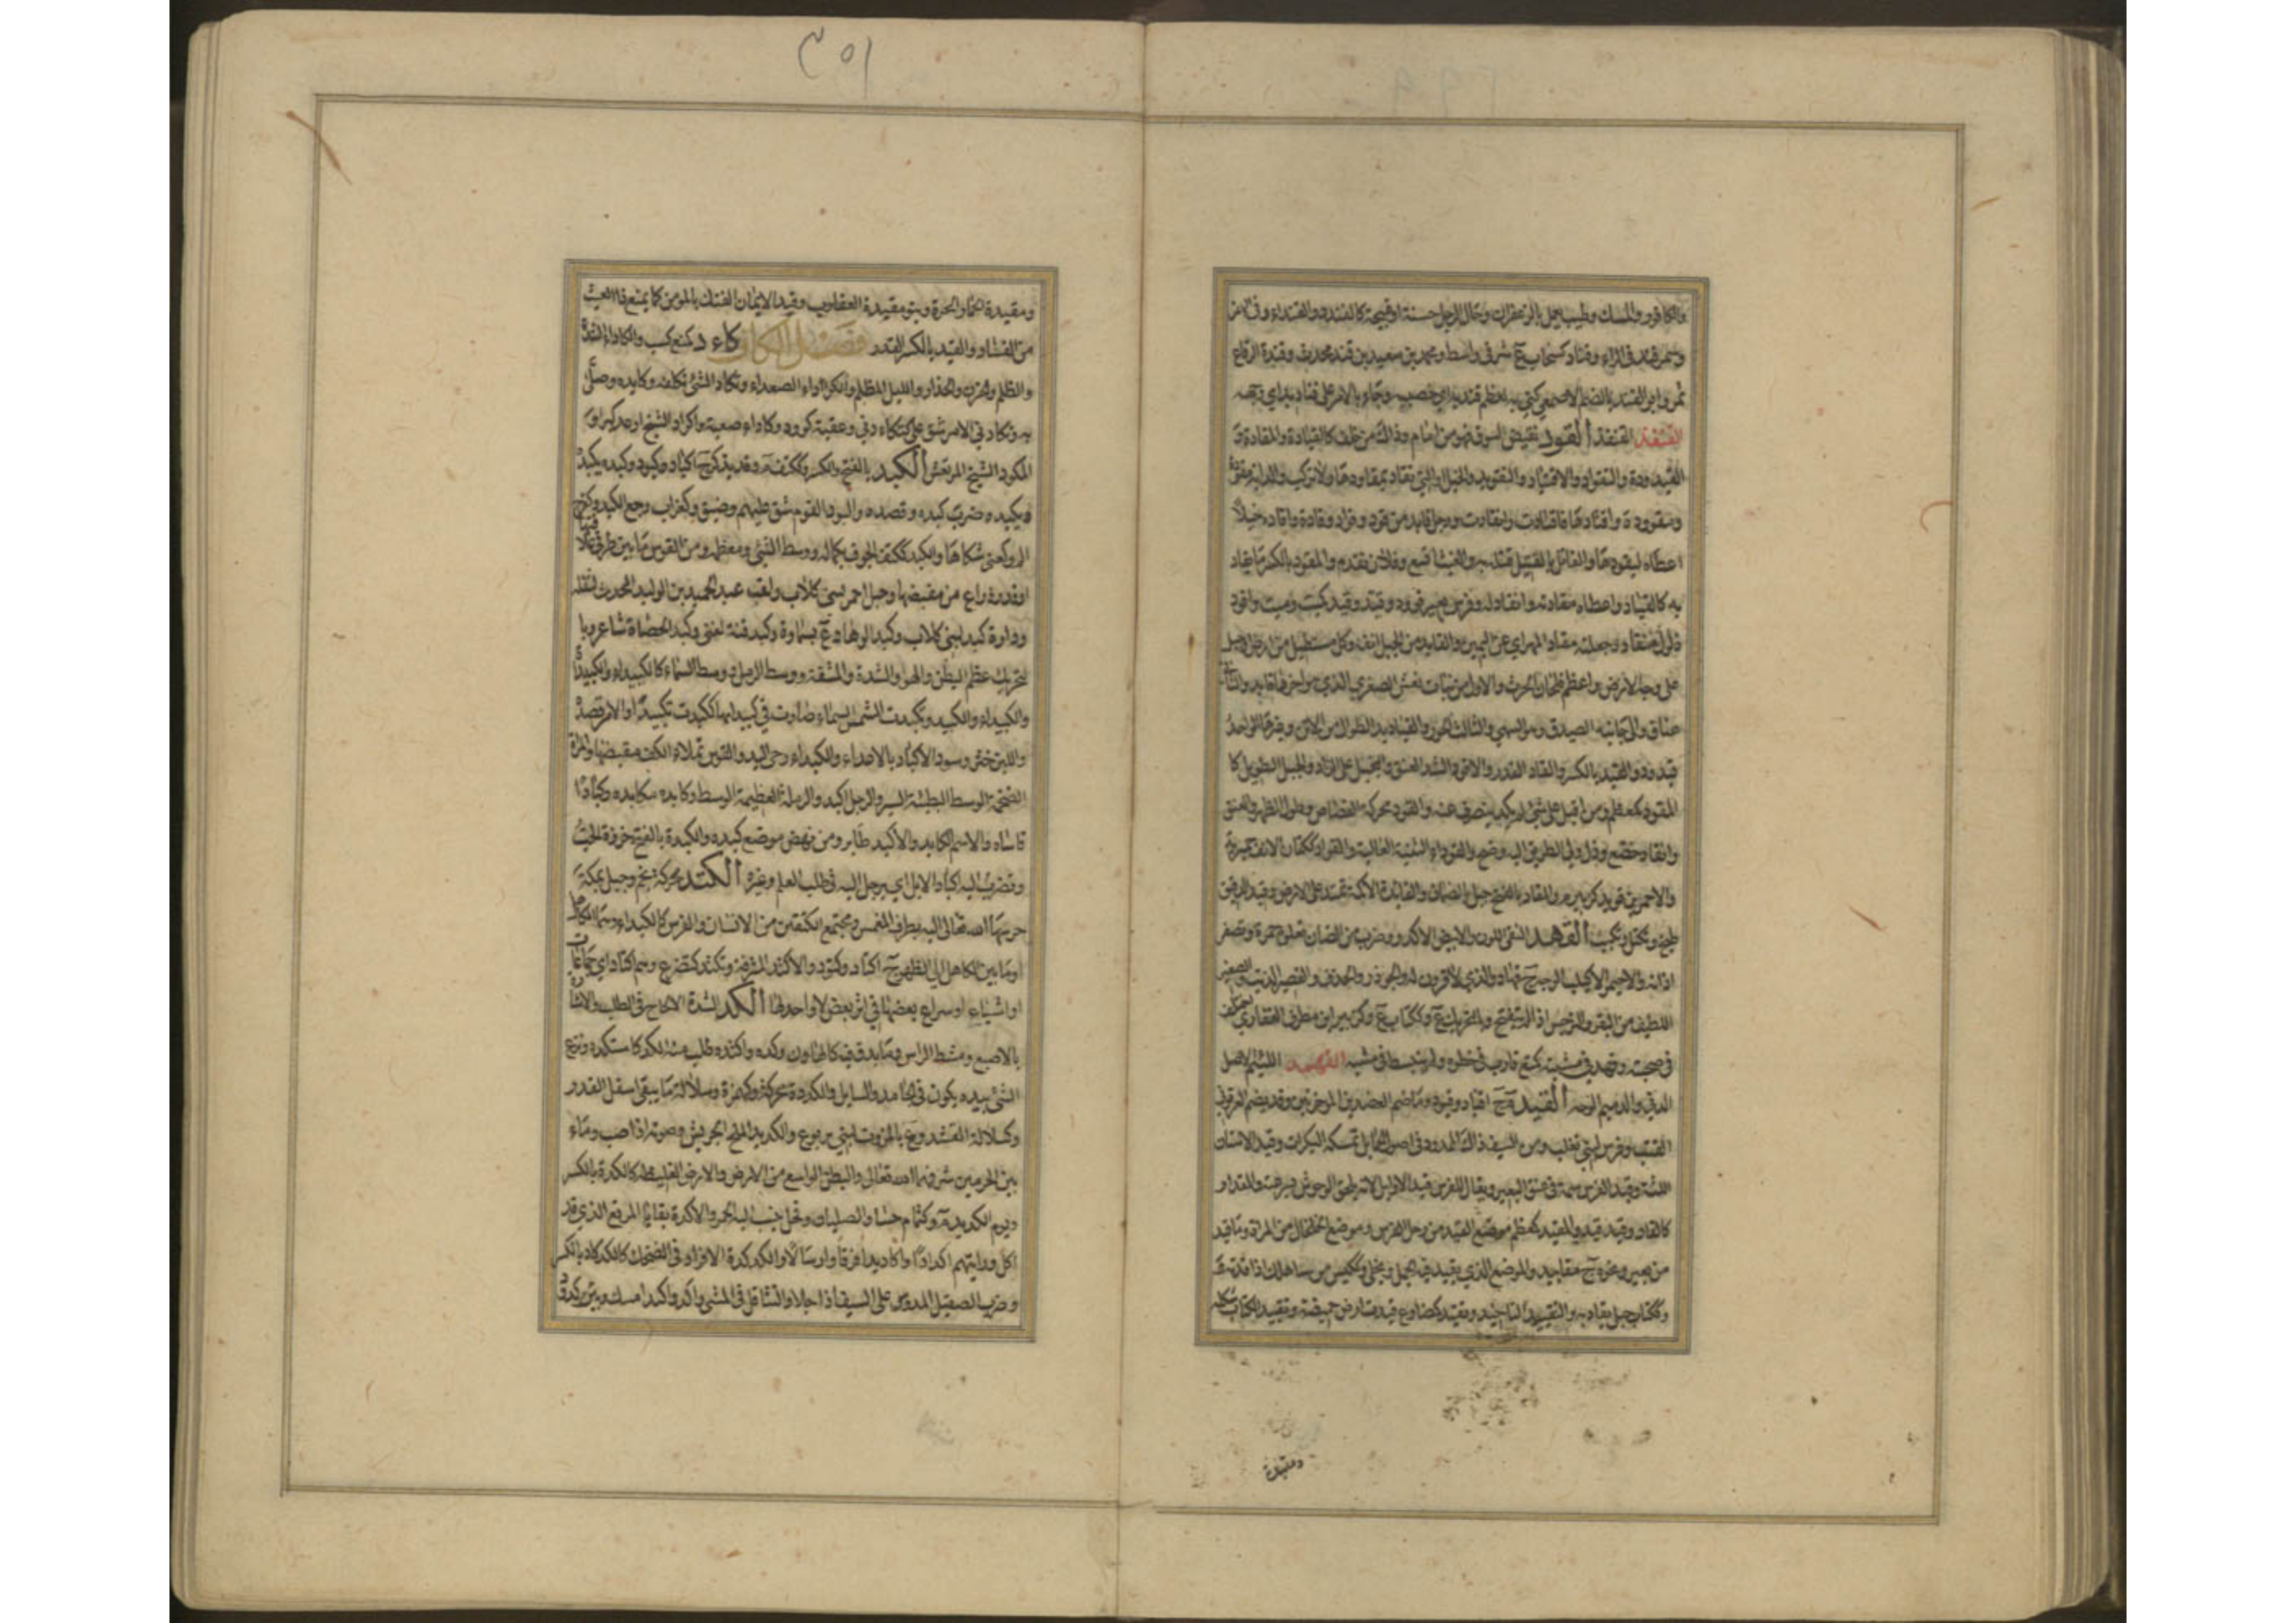 والكافور والمسك وطيب يعمل بالزعفران وحال الرجل حسنة او قبيحة
وسمرقند في الراء وقناد كسحاب ع شرقي واسط ومحمد بن سعيد بن قند محدث وقندة الرقاع
تمر وابو القند بالضم الاصمعي كني به لعظم قنديه اي خصييه وجاء بالامر على قناديده اي وجهه
القنفد القنفذ القود نقيض السوق فهو من امام وذاك من خلف كالقيادة والمقادة و
القيدودة والتقواد والاقتياد والتقويد والخيل او التي تقاد بمقاودها ولا تركب والدابة مقودة
ومقوودة واقتادها فاقتادت وانقادت ورجل قايد من قود وقواد وقادة واقاده خيلا
اعطاه ليقودها والقاتل بالقتيل قتله به والغيث اتسع وفلان تقدم والمقود بالكسر ما يقاد
به كالقياد واعطاه مقادته وانقاد له وفرس بعير قوود وقيد وقيد كميت وميت واقود
ذلول منقاد وجعلته مقاد المهر اي عن اليمين والقايد من الجبل انفه وكل مستطيل من ارض او جبل
على وجه الارض واعظم فلجان الحرث والاول من بنات نعش الصغرى الذي هو اخرها قايد والثاني
عناق والى جانبه الصيدق وهو السهي والثالث الحور والقياديد الطوال من الاتن وغيرها الواحد
قيدود والقيد بالكسر والقاد القدر والاقود الشديد العنق والبخيل على الزاد والجبل الطويل كا
لمقود كمعظم ومن اقبل على شيء لم يكد ينصرف عنه والقود محركة القصاص وطول الظهر والعنق
وانقاد خضع وذل ولي الطريق اليه وضح والقوداء الثنية العالية والقواد ككتان الانف حميرية
والاحمر بن قويد كزبير م والمقاد بالفتح جبل بالصمان والقايدة الاكمة تمتد على الارض
القهد النقي اللون والابيض الاكدر وضرب من الضان تعلوه حمرة وتصغر
اذانه والاحيمر الاكيلب الوجه ج قهاد والذي لا قرون له والجوذر والخذف والقصير الذنب والصغير
اللطيف من البقر والنرجس اذا لم يتفتح وبالتحريك ع وككتاب ع وكزبير ابن مطرف الغفاري
في صحبته وقهد في مشيته كمنع قارب في خطوه ولم ينبسط في مشيه القهمد اللئيم الاصل
الدني والدميم الوجه القيد م ج اقياد وقيود وما ضم العضدين من المؤخرين وقد يضم عرقوتي
القتب وفرس لبني تغلب ومن السيف ذاك الممدود في اصول الحمايل تمسكه البكرات وقيد الاسنان
اللثة وقيد الفرس سمة في عنق البعير ويقال للفرس قيد الاوابد لانه يلحق الوحوش بسرعته والمقدار
كالقاد وقيد والمقيد كمعظم موضع القيد من رجل الفرس وموضع الخلخال من المراة وما قيد
من بعير ونحوه ج مقاييد والموضع الذي يقيد فيه الجمل ويخلى وككيس من ساهلك اذا قدته
وككتاب حبل يقاد به والتقييد التاخيذ وتقيد كمضارع قيدت ارض حميضة وتقييد الكتاب شكله
ومقيدة
٣٥١
ومقيدة الحمار الحرة وبنو مقيدة العقارب وقيد الايمان الفتك بالمؤمن كما يمنع ذا العيث
من الفساد والقيد بالكسر القدر فصل الكاف كاءد كمنع كسب والكاداء الشدة
والظلم والحزن والحذار والليل المظلم والكؤداء الصعداء وتكاد الشيء تكلفه وكابده وصلي
به وتكادني الامر شق علي كتكاءدني وعقبة كؤود وكاداء صعبة واكواد الشيخ ارعد كبرا و
المكوئد الشيخ المرتعش الكبد بالفتح والكسر وككتف م وقد يذكر ج اكباد وكبود وكبده يكبده
ويكبده ضرب كبده وقصده والبرد القوم شق عليهم وضيق وكغراب وجع الكبد وكفرح
الم وكعني شكاها والكبد ككتف الجوف بكماله ووسط الشيء ومعظمه ومن القوس ما بين طرفي علاقتها
او قدر ذراع من مقبضها وجبل احمر لبني كلاب ولقب عبد الحميد بن الوليد المحدث لثقله
ودارة كبد لبني كلاب وكبد الوهاد ع بسماوة وكبد قنة لغني وكبد الحصاة شاعر وبا
لتحريك عظم البطن والهواء والشدة والمشقة ووسط الرمل ووسط السماء كالكبيداء والكبيداة
والكبداء والكبد وتكبدت الشمس السماء صارت في كبيدائها ككبدت تكبيدا والامر قصده
واللبن خثر وسود الاكباد الاعداء والكبداء رحى اليد والقوس تملاء الكف مقبضها والمراة
الضخمة الوسط البطيئة السير والرجل اكبد والرملة العظيمة الوسط وكابده مكابدة وكبادا
قاساه والاسم الكابد والاكبد طاير ومن نهض موضع كبده والكبدة بالفتح خرزة للحب
وتضرب اليه اكباد الابل اي يرحل اليه في طلب العلم وغيره الكتد محركة نجم وجبل بمكة
حرسها الله تعالى اليه بطرف المغمس ومجتمع الكتفين من الانسان والفرس كالكتد او هما الكاهل
او ما بين الكاهل الى الظهر ج اكتاد وكتود والاكتد المشرفه وتكتد كتضرع وهم اكتاد اي جماعات
او اشباه او سراع بعضها في اثر بعض لا واحد لها الكد الشدة الالحاح في الطلب والاشارة
بالاصبع ومشط الراس وما يدق فيه كالهاون وكده واكتده طلب منه الكد كاستكده ونزع
الشيء بيده يكون في الجامد والسايل والكددة محركة وكهمزة وسلالة ما يبقى اسفل القدر
وكسلالة القشدة وع بالمروت لبني يربوع والكديد الملح الجريش وصوته اذا صب وماء
بين الحرمين شرفهما الله تعالى والبطن الواسع من الارض والارض الغليظة كالكدة بالكسر
ويوم الكديد م وكثمام حساء والصليان وفحل ينسب اليه الحمر والاكدة بقايا المرتع الذي قد
اكل ورايتهم اكدادا واكاديد فرقا وارسالا والكدكدة الافراط في الضحك كالكدكاد بالكسر
وضرب الصيقل المدوس على السيف اذا جلاه والتثاقل في المشي واكد واكتد امسك